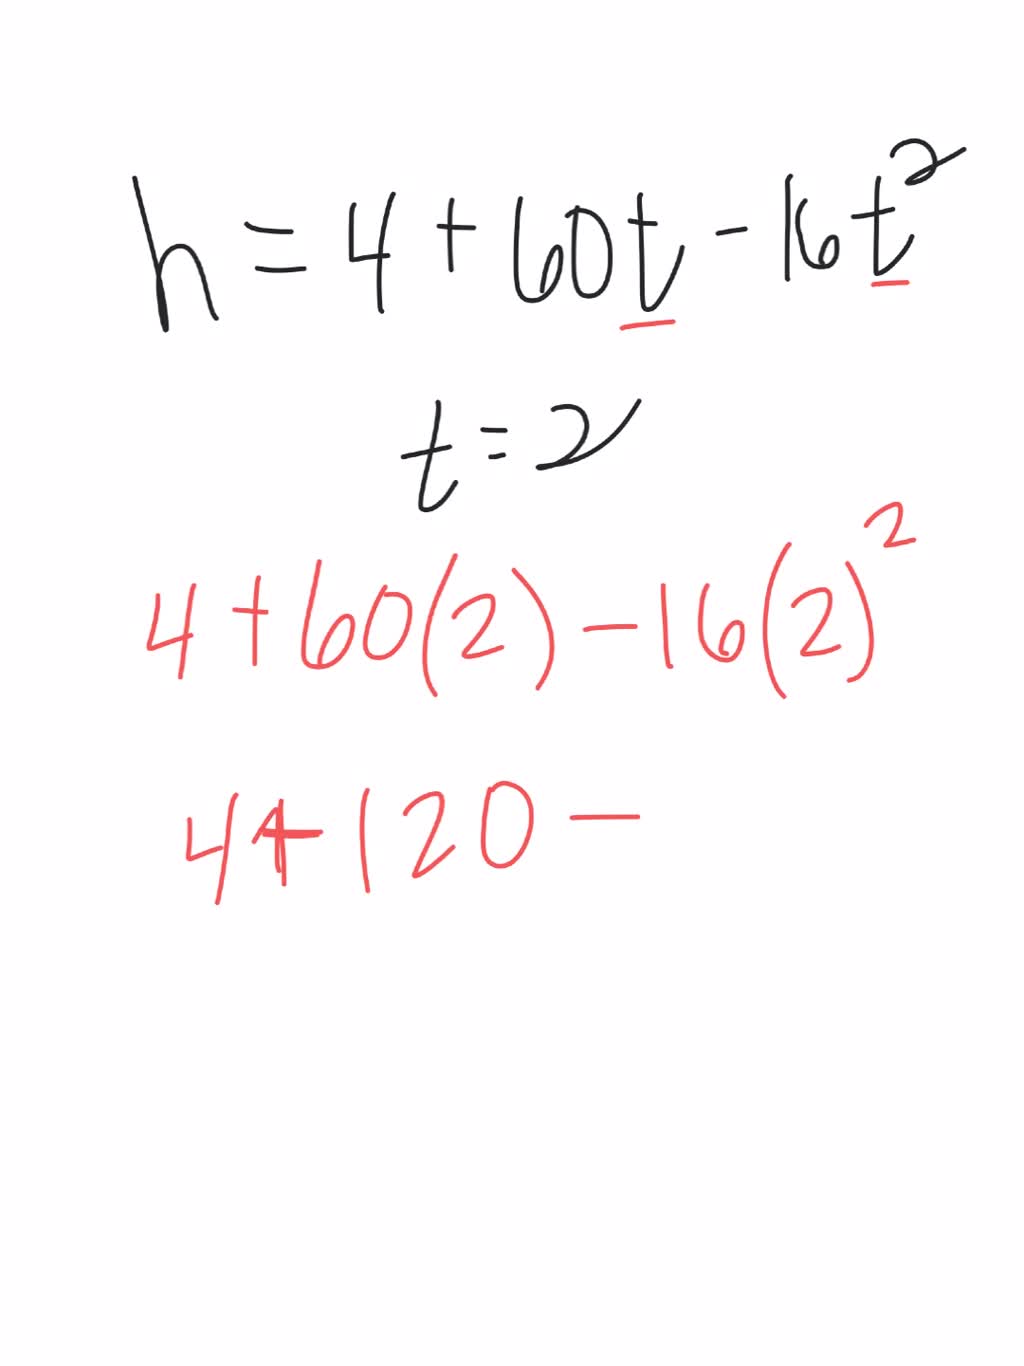 h = 4 + 60t - 16t²
t = 2
4 + 60(2) - 16(2)²
4 + 120 -